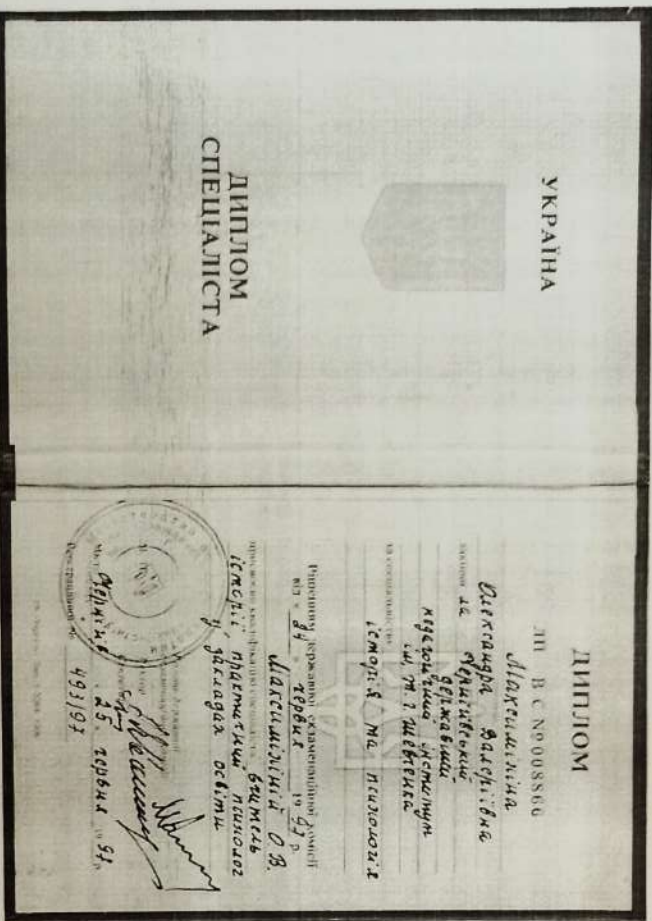 УКРАЇНА
ДИПЛОМ
СПЕЦІАЛІСТА
ДИПЛОМ
ЛП ВС №008866
Максиміхіна
Олександра Валеріївна
закінчила Чернігівський
державний
педагогічний інститут
ім. Т. Г. Шевченка
за спеціальністю
історія та психологія
Рішенням державної екзаменаційної комісії
від « 24 » червня 1997 р.
О. В.
присвоєно кваліфікацію вчитель
історії, практичний психолог
у закладах освіти
Чернігів 25 червня 1997 р.
Реєстраційний № 493/97